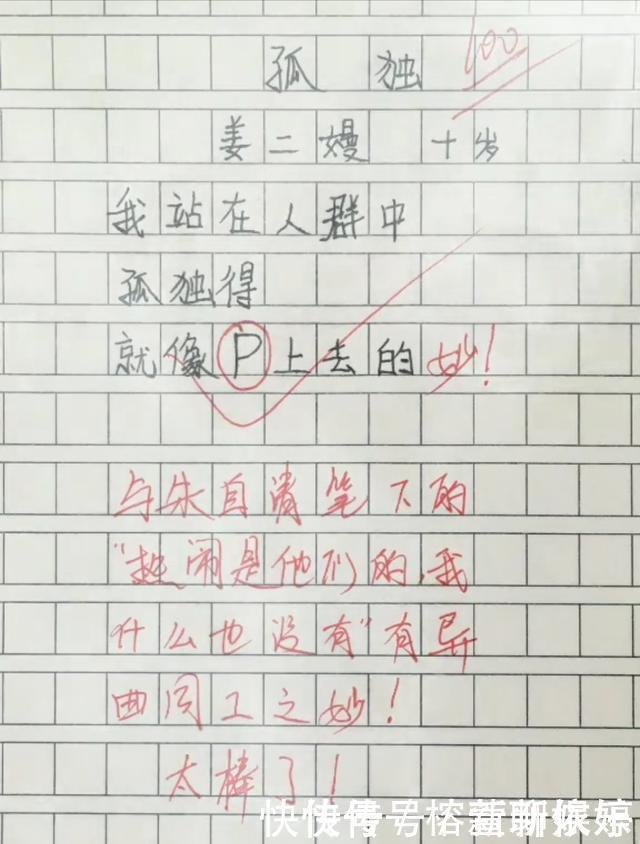 孤独 100
姜二嫚 十岁
我站在人群中
孤独得
就像P上去的 妙!
与朱自清笔下的
"热闹是他们的,我
什么也没有"有异
曲同工之妙!
太棒了!